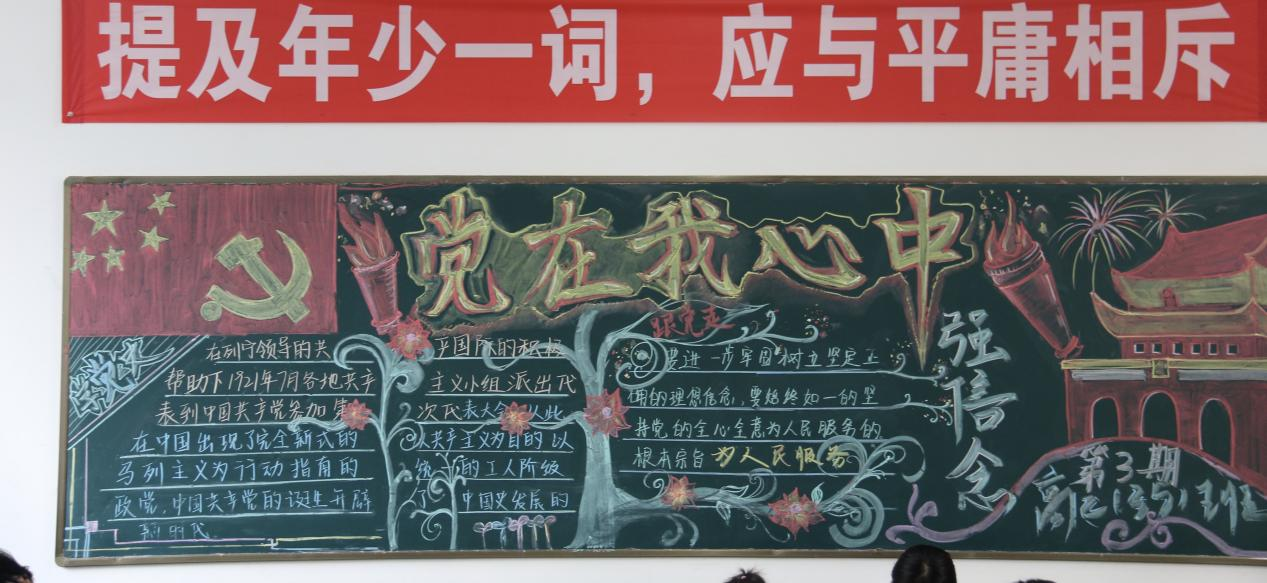 提及年少一词，应与平庸相斥
党在我心中
强信念
学党史
在列宁领导的共产国际的积极
帮助下1921年7月各地共产主义小组派出代
表到中国共产党参加第一次代表大会从此
在中国出现了完全新式的以共产主义为目的以
马列主义为行动指南的统一的工人阶级
政党，中国共产党的诞生开辟了中国史发展的
新时代。
跟党走
要进一步牢固树立坚定正
确的理想信念，要始终如一的坚
持党的全心全意为人民服务的
根本宗旨为人民服务
第3期
高
班